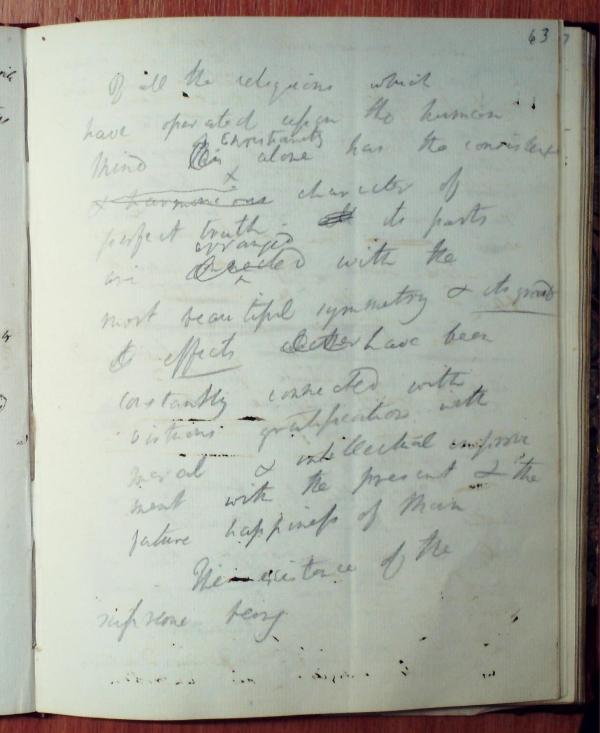 63
Of all the religions which
have operated upon the human
Christianity
mind alone has the consistent
& harmonious character of
perfect truth. its parts
arranged
are with the
most beautiful symmetry & its grand
effects have been
constantly connected with
virtuous gratification with
moral & intellectual improve
ment with the present & the
future happiness of Man
The existence of the
supreme being